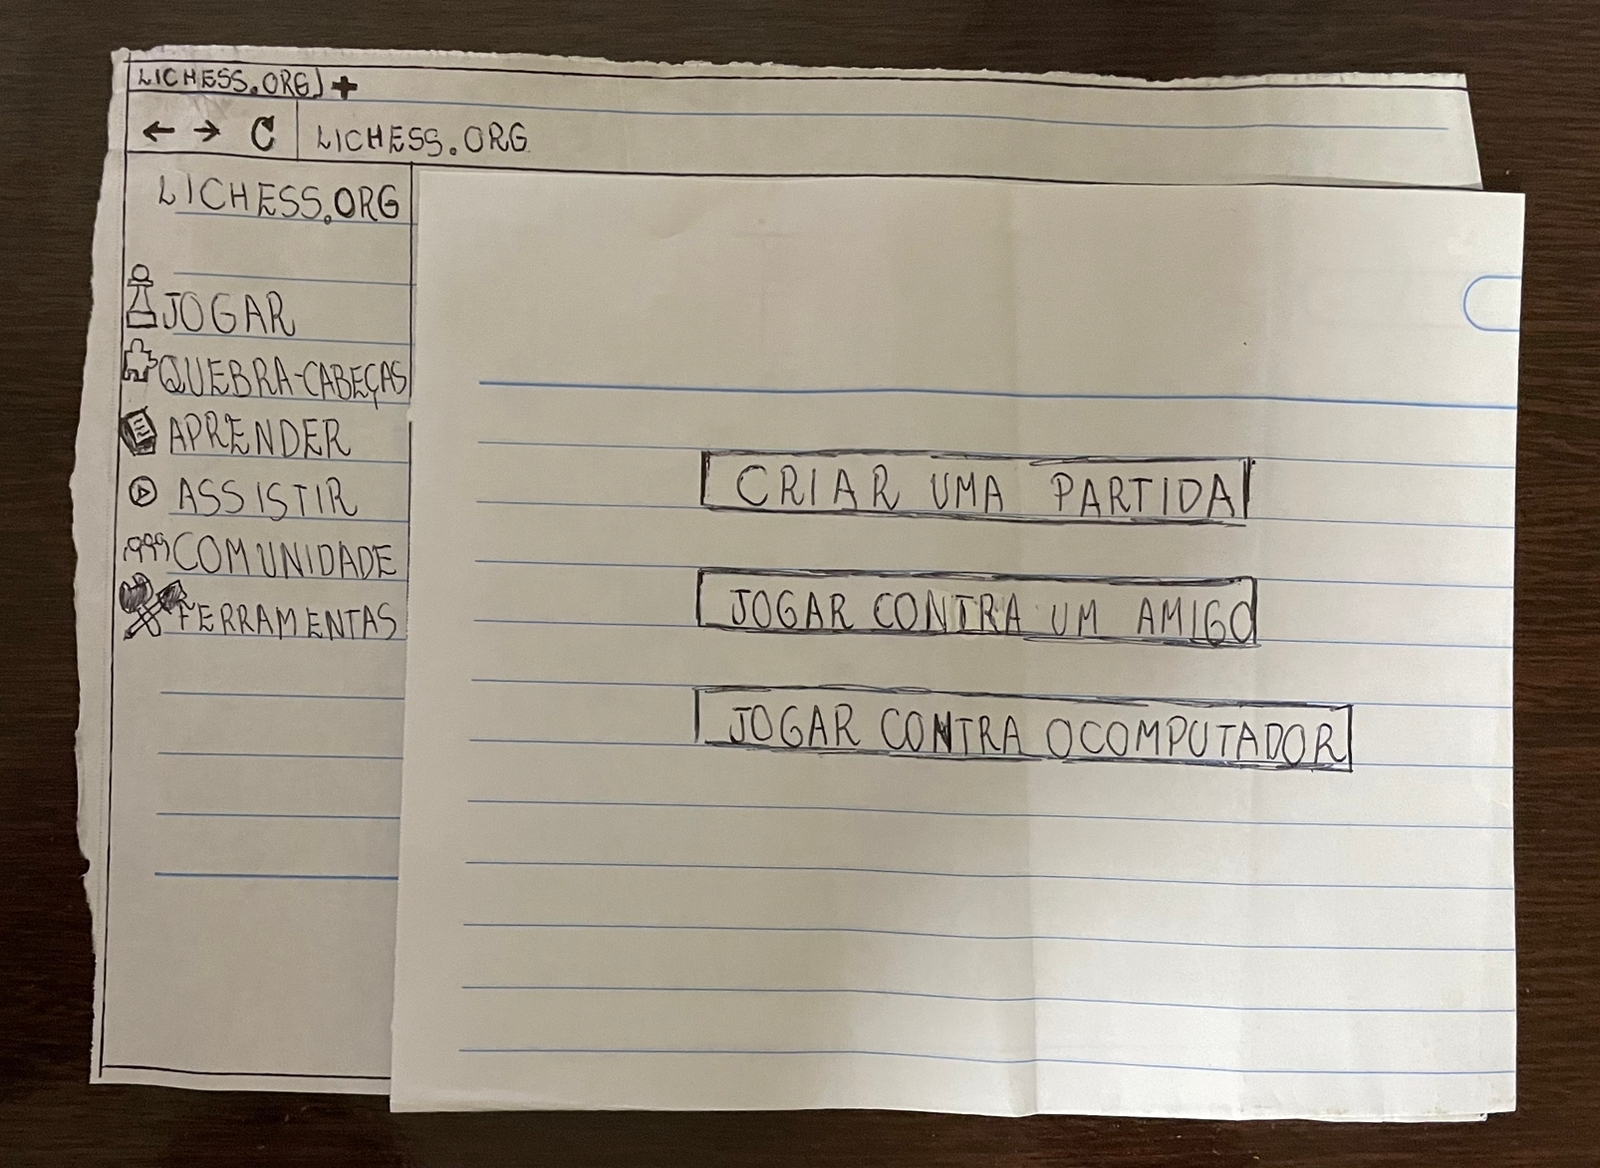 LICHESS.ORG +
← → C LICHESS.ORG
LICHESS.ORG
JOGAR
QUEBRA-CABEÇAS
APRENDER
ASSISTIR
COMUNIDADE
FERRAMENTAS
CRIAR UMA PARTIDA
JOGAR CONTRA UM AMIGO
JOGAR CONTRA OCOMPUTADOR